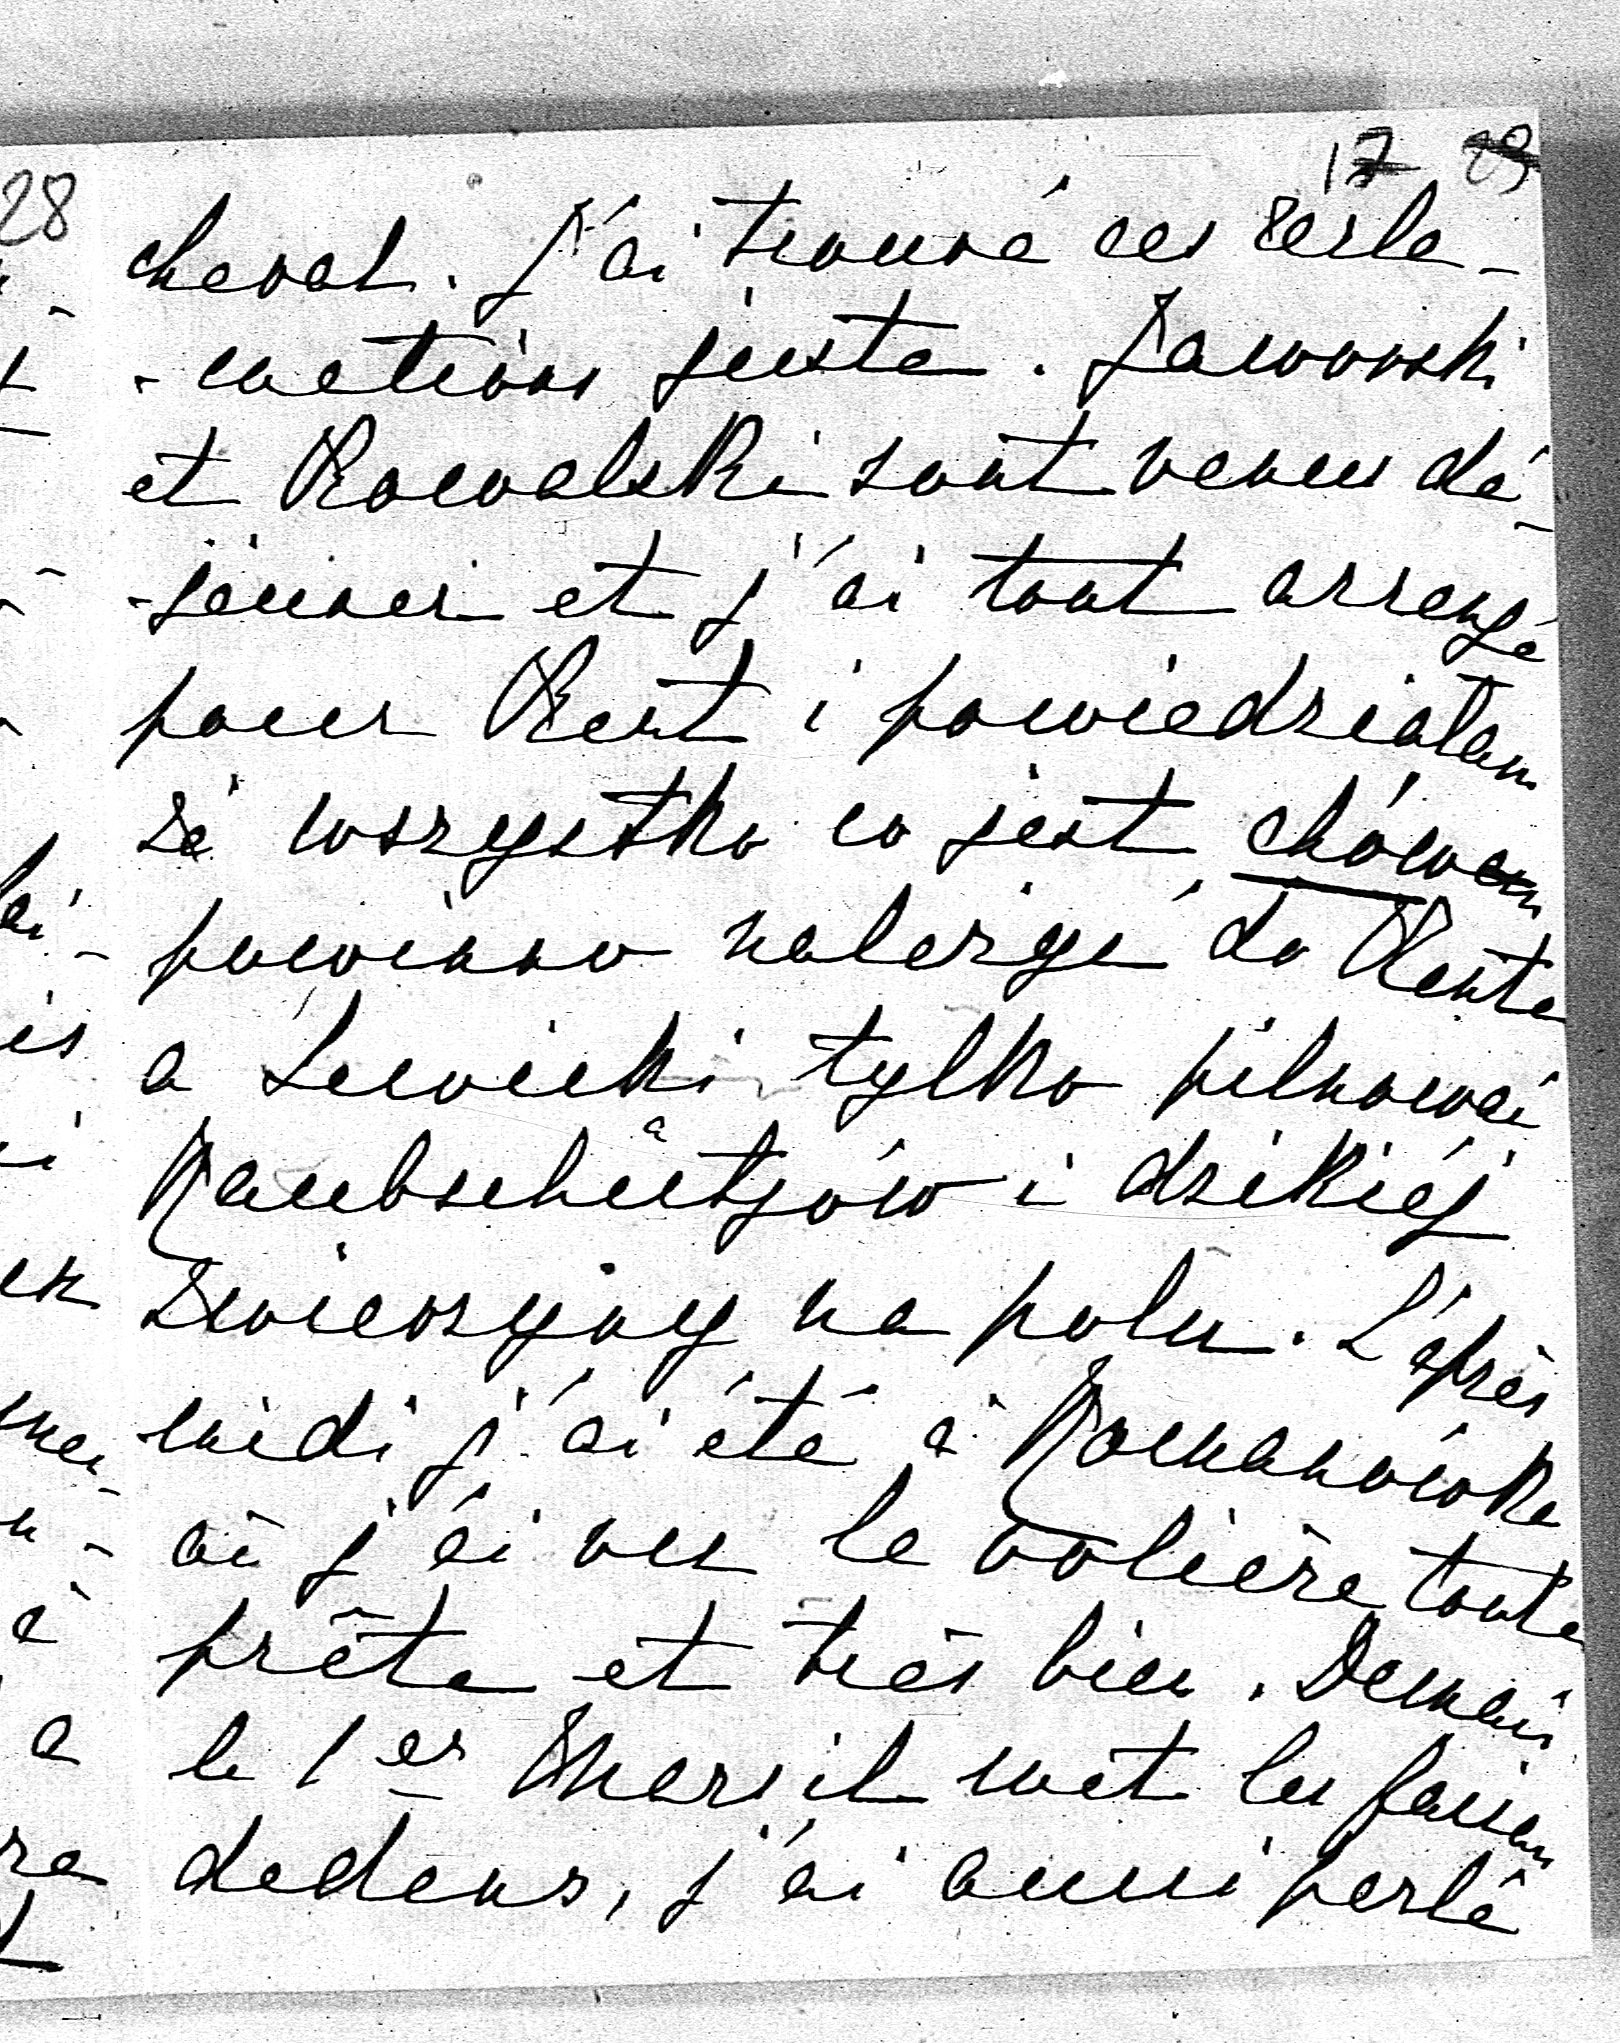 17 29
28
cheval. J'ai trouvé ces récla-
-mations juste. Jaworski
et Kowalski sont venus dé-
-jeuner et j'ai tout arrengé
pour Kent i powiedziałam
że wszystko co jest chowem
powinno należyć do Kenta
a Lewicki tylko pilnować
Raubschützów i dzikiéj
zwierzyny na polu. L'après
midi j'ai été à Romanówka
où j'ai vu la volière toute
prête et très bien. Demain
le 1er Mars il met les faisans
dedans, j'ai aussi parlé